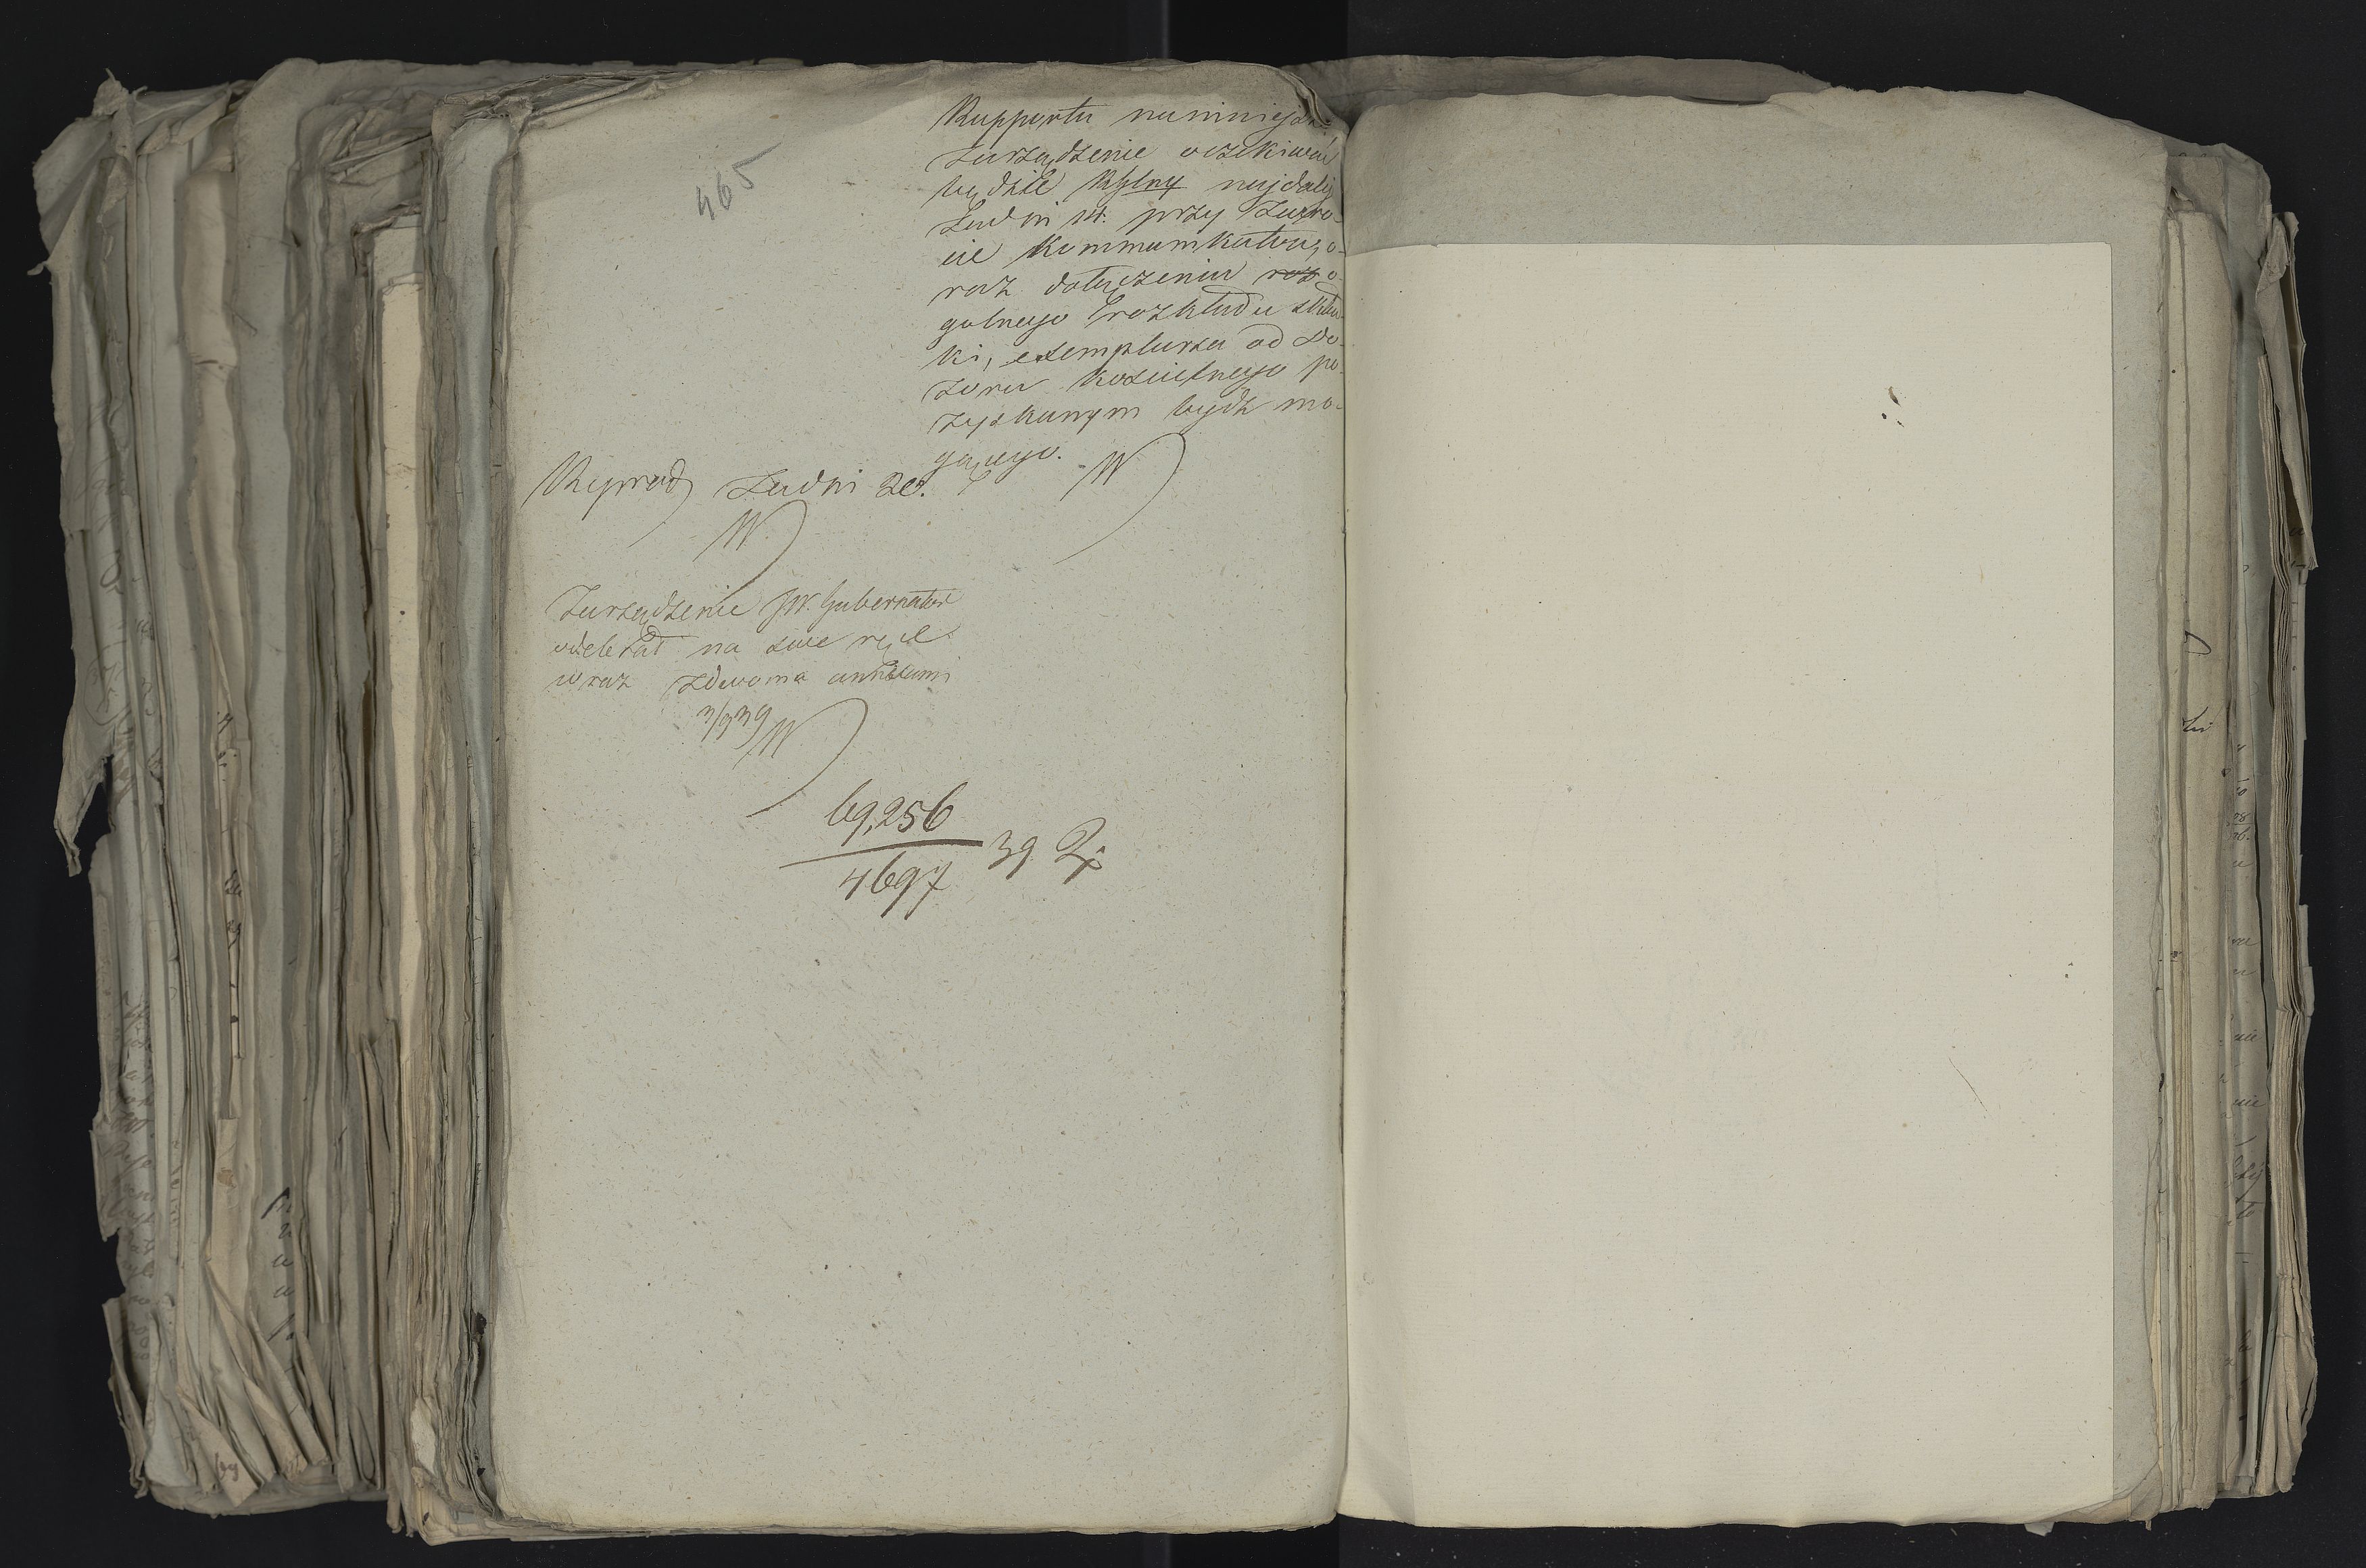 465
Rapportu naninieysze
Zarządzenie oczekiwać
będzie najdaléj
Zadni 14. przy zwro-
cie kommunikatu, o-
raz dołączeniu o-
gólnego rozkładu skład-
ki, exemplarza od Do-
zoru kościelnego po-
zyskanym bydź mo-
gącego. W
Reprod Zadni 20.
W
Zarządzenie JW. Gubernatora
odebrał na swe ręce
wraz zdwoma annexami
3/9 39 W
69,256
4697
39